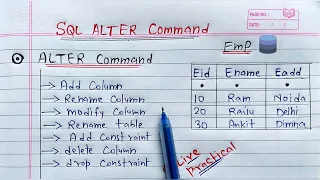 PAGE NO.:
DATE: / /
SQL ALTER Command
Emp
ALTER Command
→ Add Column
→ Rename Column
→ modify Column
→ Rename table
→ Add Constraint
→ delete Column
→ drop Constraint
Eid Ename Eadd
10 Ram Noida
20 Railu Delhi
30 Ankit Dimna
Live Practical